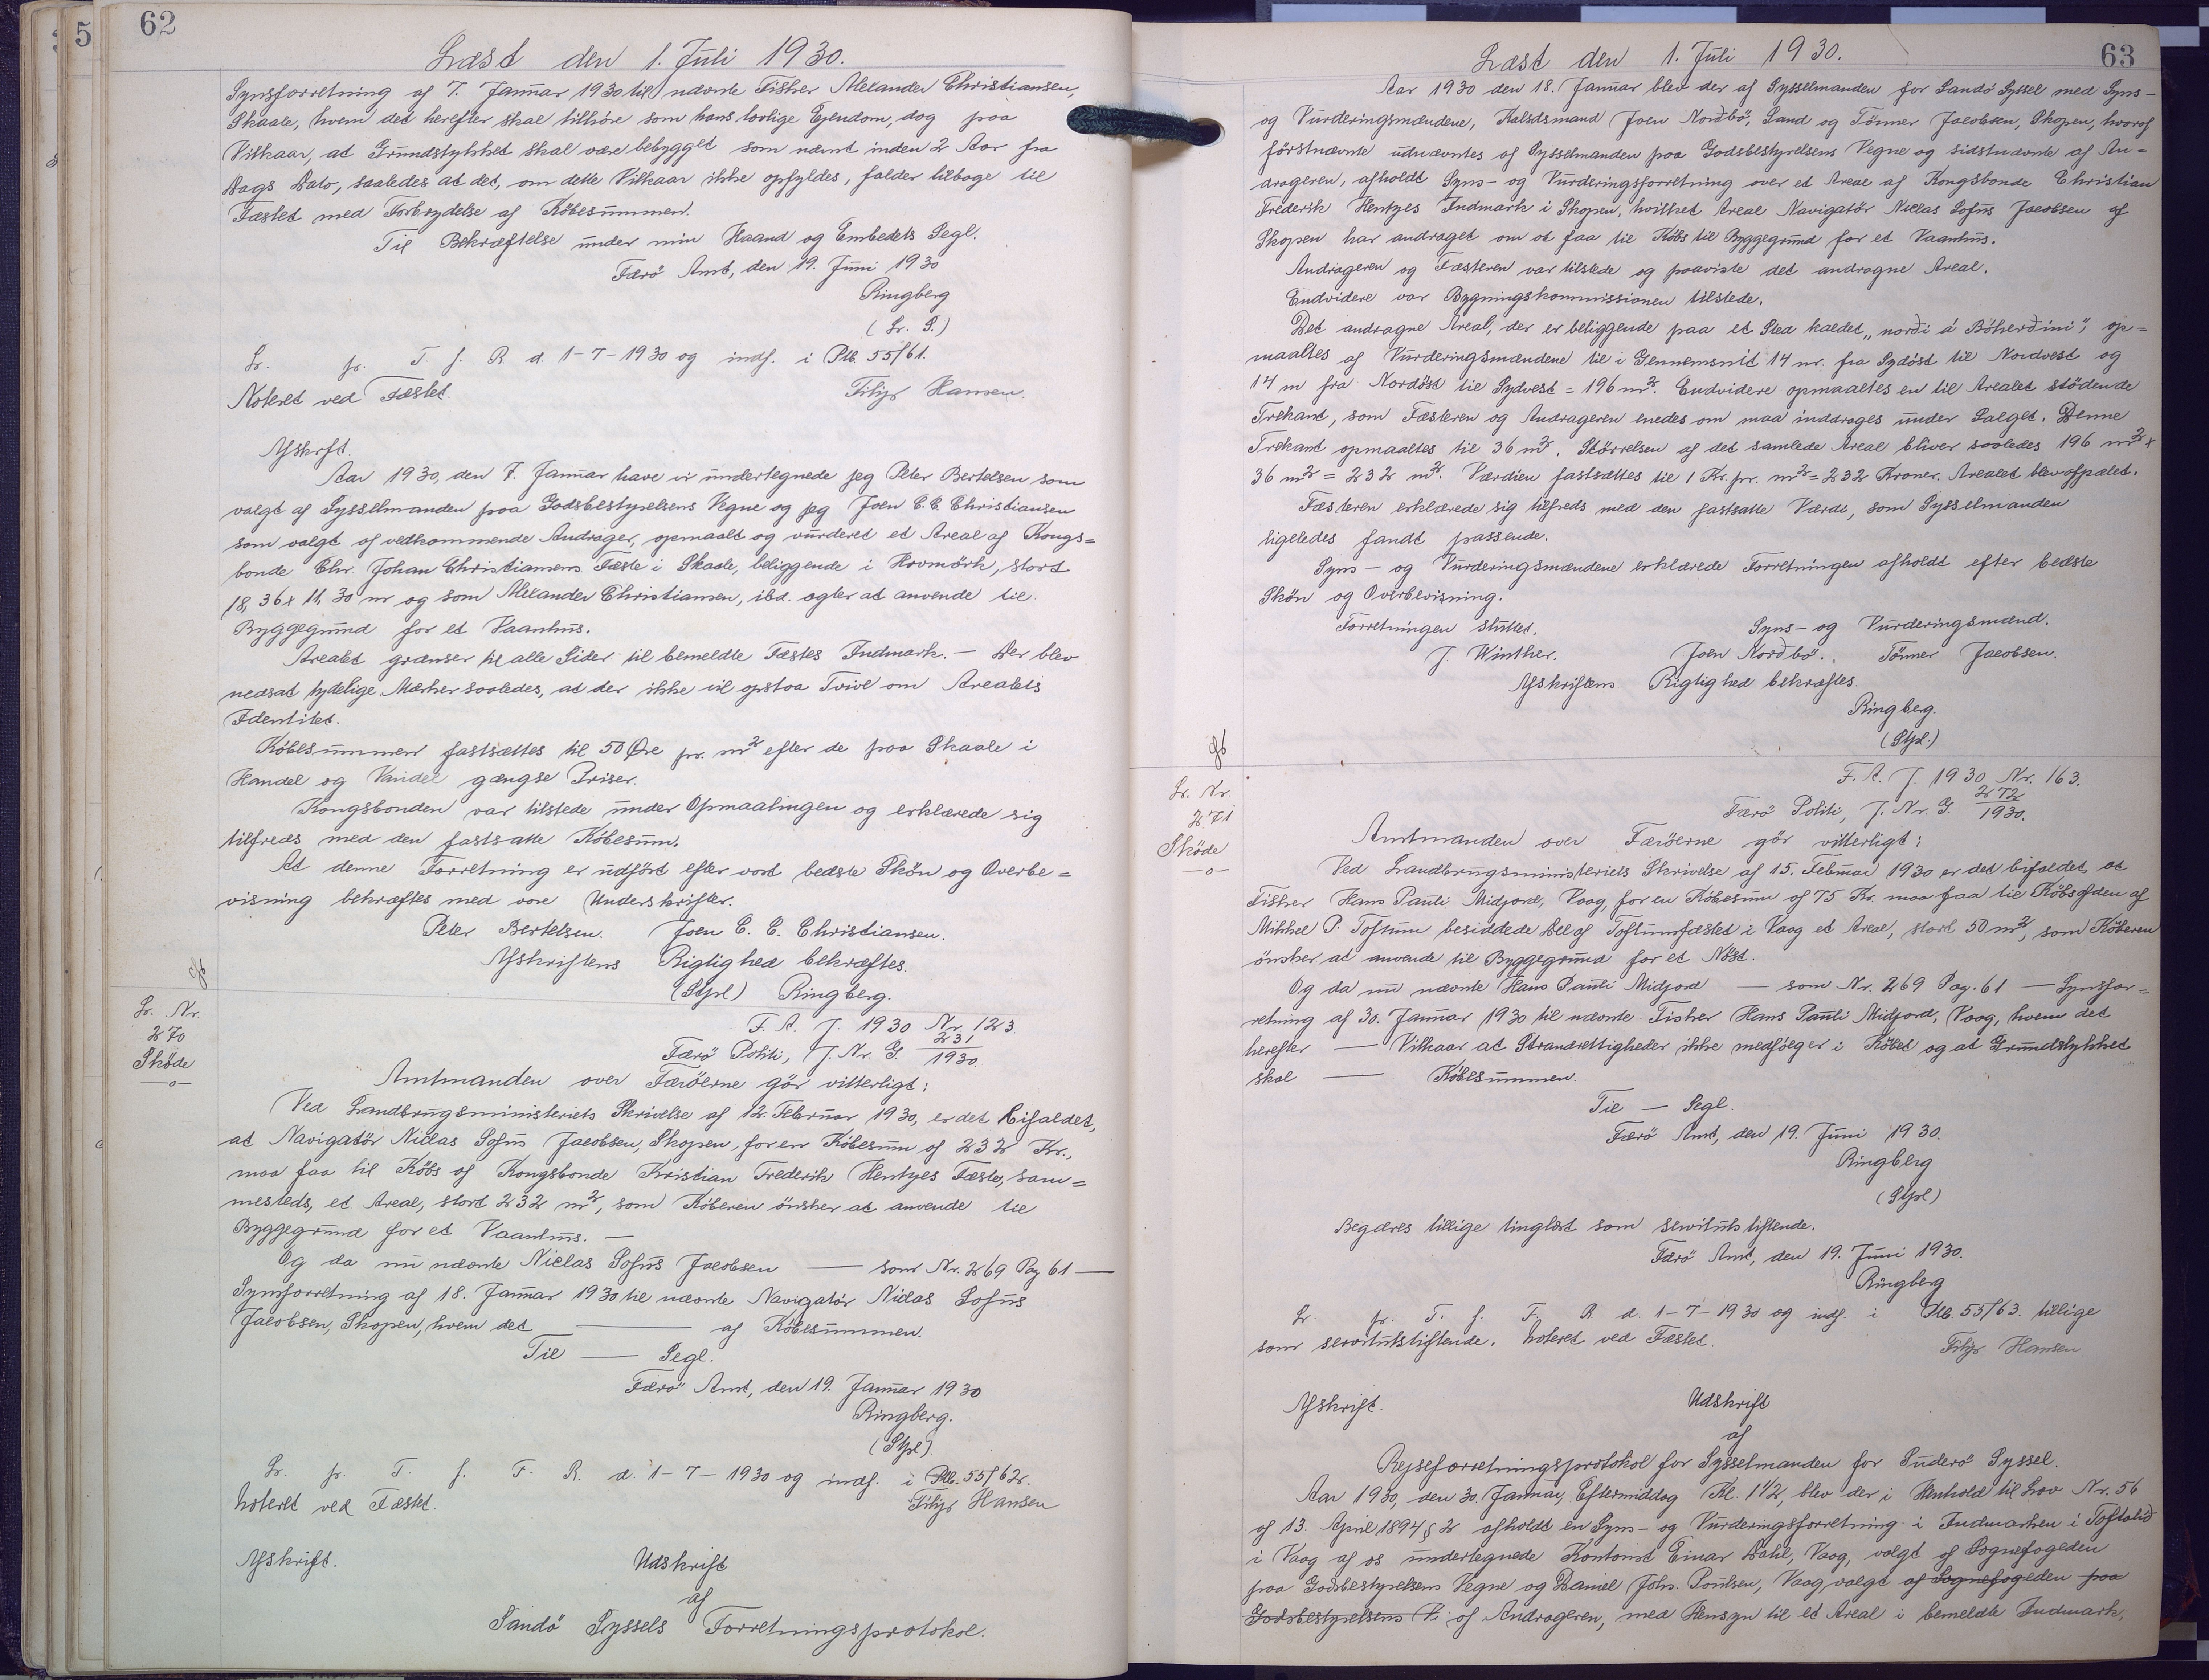 62
Læst den 1. Juli 1930.
Synsforretning af 7. Januar 1930 til nævnte Fisker Alexander Christiansen,
Skaale, hvem det herefter skal tilhöre som hans lovlige Ejendom, dog paa
Vilkaar, at Grundstykket skal være bebygget som nævnt inden 2 Aar fra
Dags Dato, saaledes at det, om dette Vilkaar ikke opfyldes, falder tilbage til
Fæstet med Forbrydelse af Köbesummen.
Til Bekræftelse under min Haand og Embedets Segl.
Færö Amt, den 19. Juni 1930
Ringberg
(Lr. S.)
Lr. fr. T. f. R d. 1-7-1930 og indf. i Ptb 55/61.
Noteret ved Fæstet. Filip Hansen.
Afskrft.
Aar 1930, den 7. Januar have vi undertegnede jeg Peter Bertelsen som
valgt af Sysselmanden paa Godsbestyrelsens Vegne og jeg Joen C. E. Christiansen
som valgt af vedkommende Andrager, opmaalt og vurderet et Areal af Kongs=
bonde Chr. Johan Christiansens Fæste i Skaale, beliggende i Hovmörk, stort
18,36 x 11,30 m og som Alexander Christiansen, ibd. agter at anvende til
Byggegrund for et Vaanhus.
Arealet grænser til alle Sider til bemeldte Fæstes Indmark. — Der blev
nedsat tydelige Mærker saaledes, at der ikke vil opstaa Tvivl om Arealets
Identitet.
Köbesummen fastsættes til 50 Øre pr. m² efter de paa Skaale i
Handel og Vandel gængse Priser.
Kongsbonden var tilstede under Opmaalingen og erklærede sig
tilfreds med den fastsatte Köbesum.
At denne Forretning er udfört efter vort bedste Skön og Overbe=
visning bekræftes med vore Underskrifter.
Peter Bertelsen. Joen C. E. Christiansen.
Afskriftens Rigtighed bekræftes.
(Stpl) Ringberg.
Lr. Nr.
270
Sköde
—o—
F. A. J. 1930 Nr. 123.
Færö Politi, J. Nr. G. 231/1930.
Amtmanden over Færöerne gör vitterligt:
Ved Landbrugsministeriets Skrivelse af 12. Februar 1930, er det bifaldet,
at Navigatör Niclas Sofus Jacobsen, Skopen, for en Köbesum af 232 Kr.,
maa faa til Köbs af Kongsbonde Kristian Frederik Hentzes Fæste, sam=
mesteds, et Areal, stort 232 m², som Köberen önsker at anvende til
Byggegrund for et Vaanhus. —
Og da nu nævnte Niclas Sofus Jacobsen — som Nr. 269 Pag 61 —
Synsforretning af 18. Januar 1930 til nævnte Navigatör Niclas Sofus
Jacobsen, Skopen, hvem det — af Köbesummen.
Til — Segl.
Færö Amt, den 19. Januar 1930
Ringberg.
(Stpl).
Lr. fr. T. f. F. R. d. 1-7-1930 og indf. i Ptb. 55/62.
Noteret ved Fæstet. Filip Hansen
Afskrift. Udskrift
af
Sandö Syssels Forretningsprotokol.
63
Læst den 1. Juli 1930.
Aar 1930 den 18. Januar blev der af Sysselmanden for Sandö Syssel med Syns-
og Vurderingsmændene, Kalsdsmand Joen Nordbö, Sand og Tönner Jacobsen, Skopen, hvoraf
förstnævnte udnævntes af Sysselmanden paa Godsbestyrelsens Vegne og sidstnævnte af An=
drageren, afholdt Syns- og Vurderingsforretning over et Areal af Kongsbonde Christian
Frederik Hentzes Indmark i Skopen, hvilket Areal Navigatör Niclas Sofus Jacobsen af
Skopen har andraget om at faa til Köbs til Byggegrund for et Vaanhus.
Andrageren og Fæsteren var tilstede og paaviste det andragne Areal.
Endvidere var Bygningskommissionen tilstede.
Det andragne Areal, der er beliggende paa et Sted kaldet „norði á Böherðini", op=
maaltes af Vurderingsmændene til i Gennemsnit 14 m. fra Sydöst til Nordvest og
14 m fra Nordöst til Sydvest = 196 m². Endvidere opmaaltes en til Arealet stödende
Trekant, som Fæsteren og Andrageren enedes om maa inddrages under Salget. Denne
Trekant opmaaltes til 36 m². Störrelsen af det samlede Areal bliver saaledes 196 m² +
36 m² = 232 m². Værdien fastsættes til 1 Kr. pr. m² = 232 Kroner. Arealet blev afpælet.
Fæsteren erklærede sig tilfreds med den fastsatte Værdi, som Sysselmanden
ligeledes fandt passende.
Syns- og Vurderingsmændene erklærede Forretningen afholdt efter bedste
Skön og Overbevisning.
Forretningen sluttet. Syns- og Vurderingsmænd.
J. Winther. Joen Nordbö. Tönner Jacobsen.
Afskriftens Rigtighed bekræftes.
Ringberg.
(Stpl.)
Lr. Nr.
271
Sköde
—o—
F. A. J. 1930 Nr. 163.
Færö Politi, J. Nr. G. 272/1930.
Amtmanden over Færöerne gör vitterligt:
Ved Landbrugsministeriets Skrivelse af 15. Februar 1930 er det bifaldet, at
Fisker Hans Pauli Midjord, Vaag, for en Köbesum af 75 Kr. maa faa til Köbs af den af
Mikkel P. Toftum besiddede Del af Toftumfæstet i Vaag et Areal, stort 50 m², som Köberen
önsker at anvende til Byggegrund for et Nöst.
Og da nu nævnte Hans Pauli Midjord — som Nr. 269 Pag. 61 — Synsfor=
retning af 30. Januar 1930 til nævnte Fisker Hans Pauli Midjord, Vaag, hvem det
herefter — Vilkaar at Strandrettigheder ikke medfölger i Köbet og at Grundstykket
skal — Köbesummen.
Til — Segl.
Færö Amt, den 19. Juni 1930.
Ringberg
(Stpl)
Begæres tillige tinglæst som servitutstiftende.
Færö Amt, den 19. Juni 1930.
Ringberg
Lr. fr. T. f. F. R d. 1-7-1930 og indf. i Ptb. 55/63. tillige
som servitutstiftende. Noteret ved Fæstet. Filip Hansen
Afskrift. Udskrift
af
Rejseforretningsprotokol for Sysselmanden for Suderö Syssel.
Aar 1930, den 30. Januar, Eftermiddag Kl. 1 1/2, blev der i Henhold til Lov Nr. 56
af 13. April 1894 § 2 afholdt en Syns- og Vurderingsforretning i Indmarken i Toftalid
i Vaag af os undertegnede Kontorist Einar Dahl, Vaag, valgt af Sognefogeden
paa Godsbestyrelsens Vegne og Daniel Johs. Poulsen, Vaag valgt af Sognefogeden paa
Godsbestyrelsens V. af Andrageren, med Hensyn til et Areal i bemeldte Indmark,